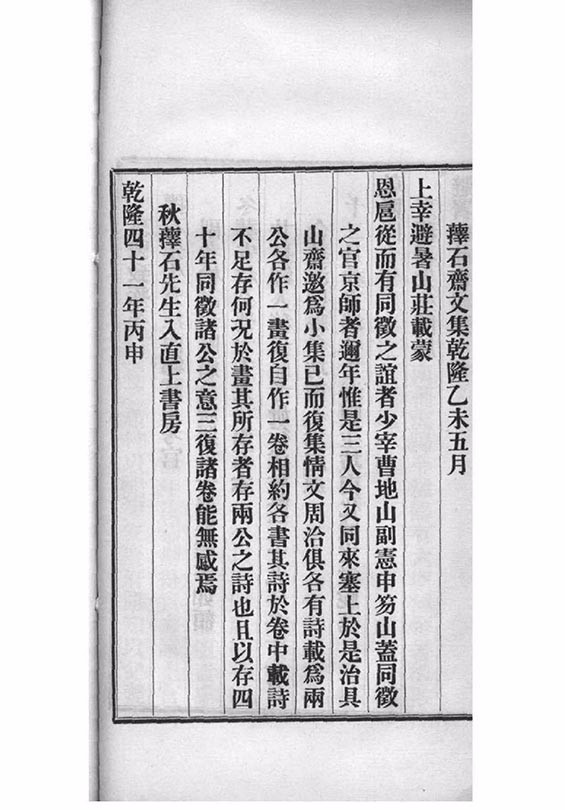 蘀石齋文集乾隆乙未五月
上幸避暑山莊載蒙
恩扈從而有同徵之誼者少宰曹地山副憲申笏山蓋同徵
之官京師者邇年惟是三人今又同來塞上於是治具
山齋邀爲小集已而復集情文周洽俱各有詩載爲兩
公各作一畫復自作一卷相約各書其詩於卷中載詩
不足存何况於畫其所存者存兩公之詩也且以存四
十年同徵諸公之意三復諸卷能無感焉
秋蘀石先生入直上書房
乾隆四十一年丙申